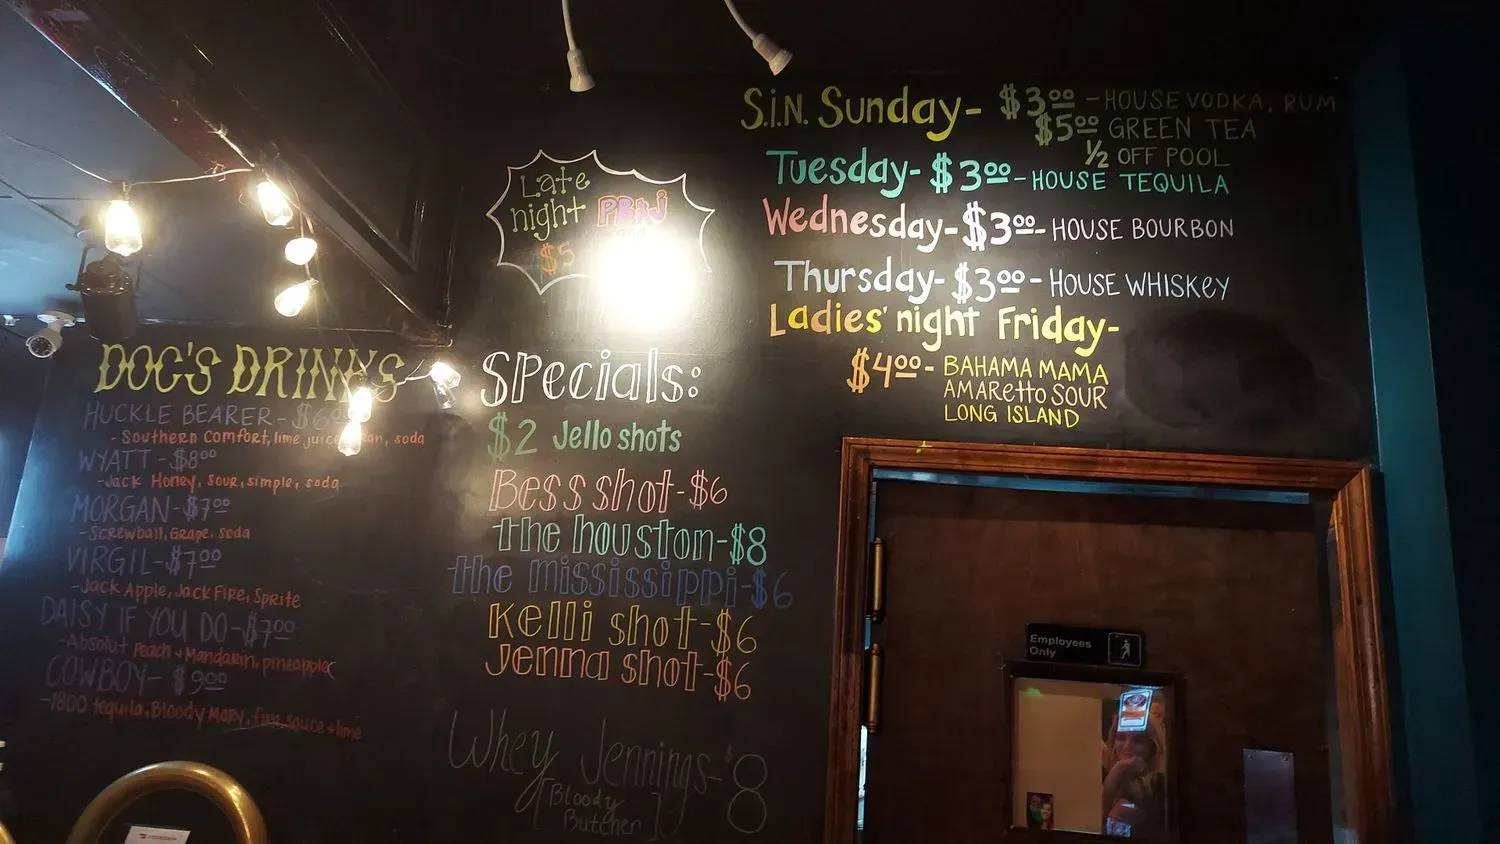 S.I.N. Sunday- $3.00 -HOUSE VODKA, RUM
$5.00 GREEN TEA
1/2 OFF POOL
Tuesday- $3.00 -HOUSE TEQUILA
Wednesday- $3.00- HOUSE BOURBON
Thursday- $3.00- HOUSE WHISKEY
Ladies' night Friday-
$4.00- BAHAMA MAMA
AMARETTO SOUR
LONG ISLAND
Late
night PB&J
and
$5
DOC'S DRINKS
HUCKLE BEARER-$6
-Southern Comfort, lime juice, soda
WYATT-$8.00
-Jack Honey, sour, simple, soda
MORGAN-$7.00
-Screwball, Grape, soda
VIRGIL-$7.00
-Jack Apple, Jack Fire, Sprite
DAISY IF YOU DO-$7.00
-Absolut Peach + Mandarin, pineapple
COWBOY- $9.00
-1800 tequila, Bloody Mary, sauce + lime
Specials:
$2 Jello shots
Bess shot-$6
the houston-$8
the mississippi-$6
Kelli shot-$6
Jenna shot-$6
Whey Jennings-$8
[Bloody
Butcher]
Employees
Only